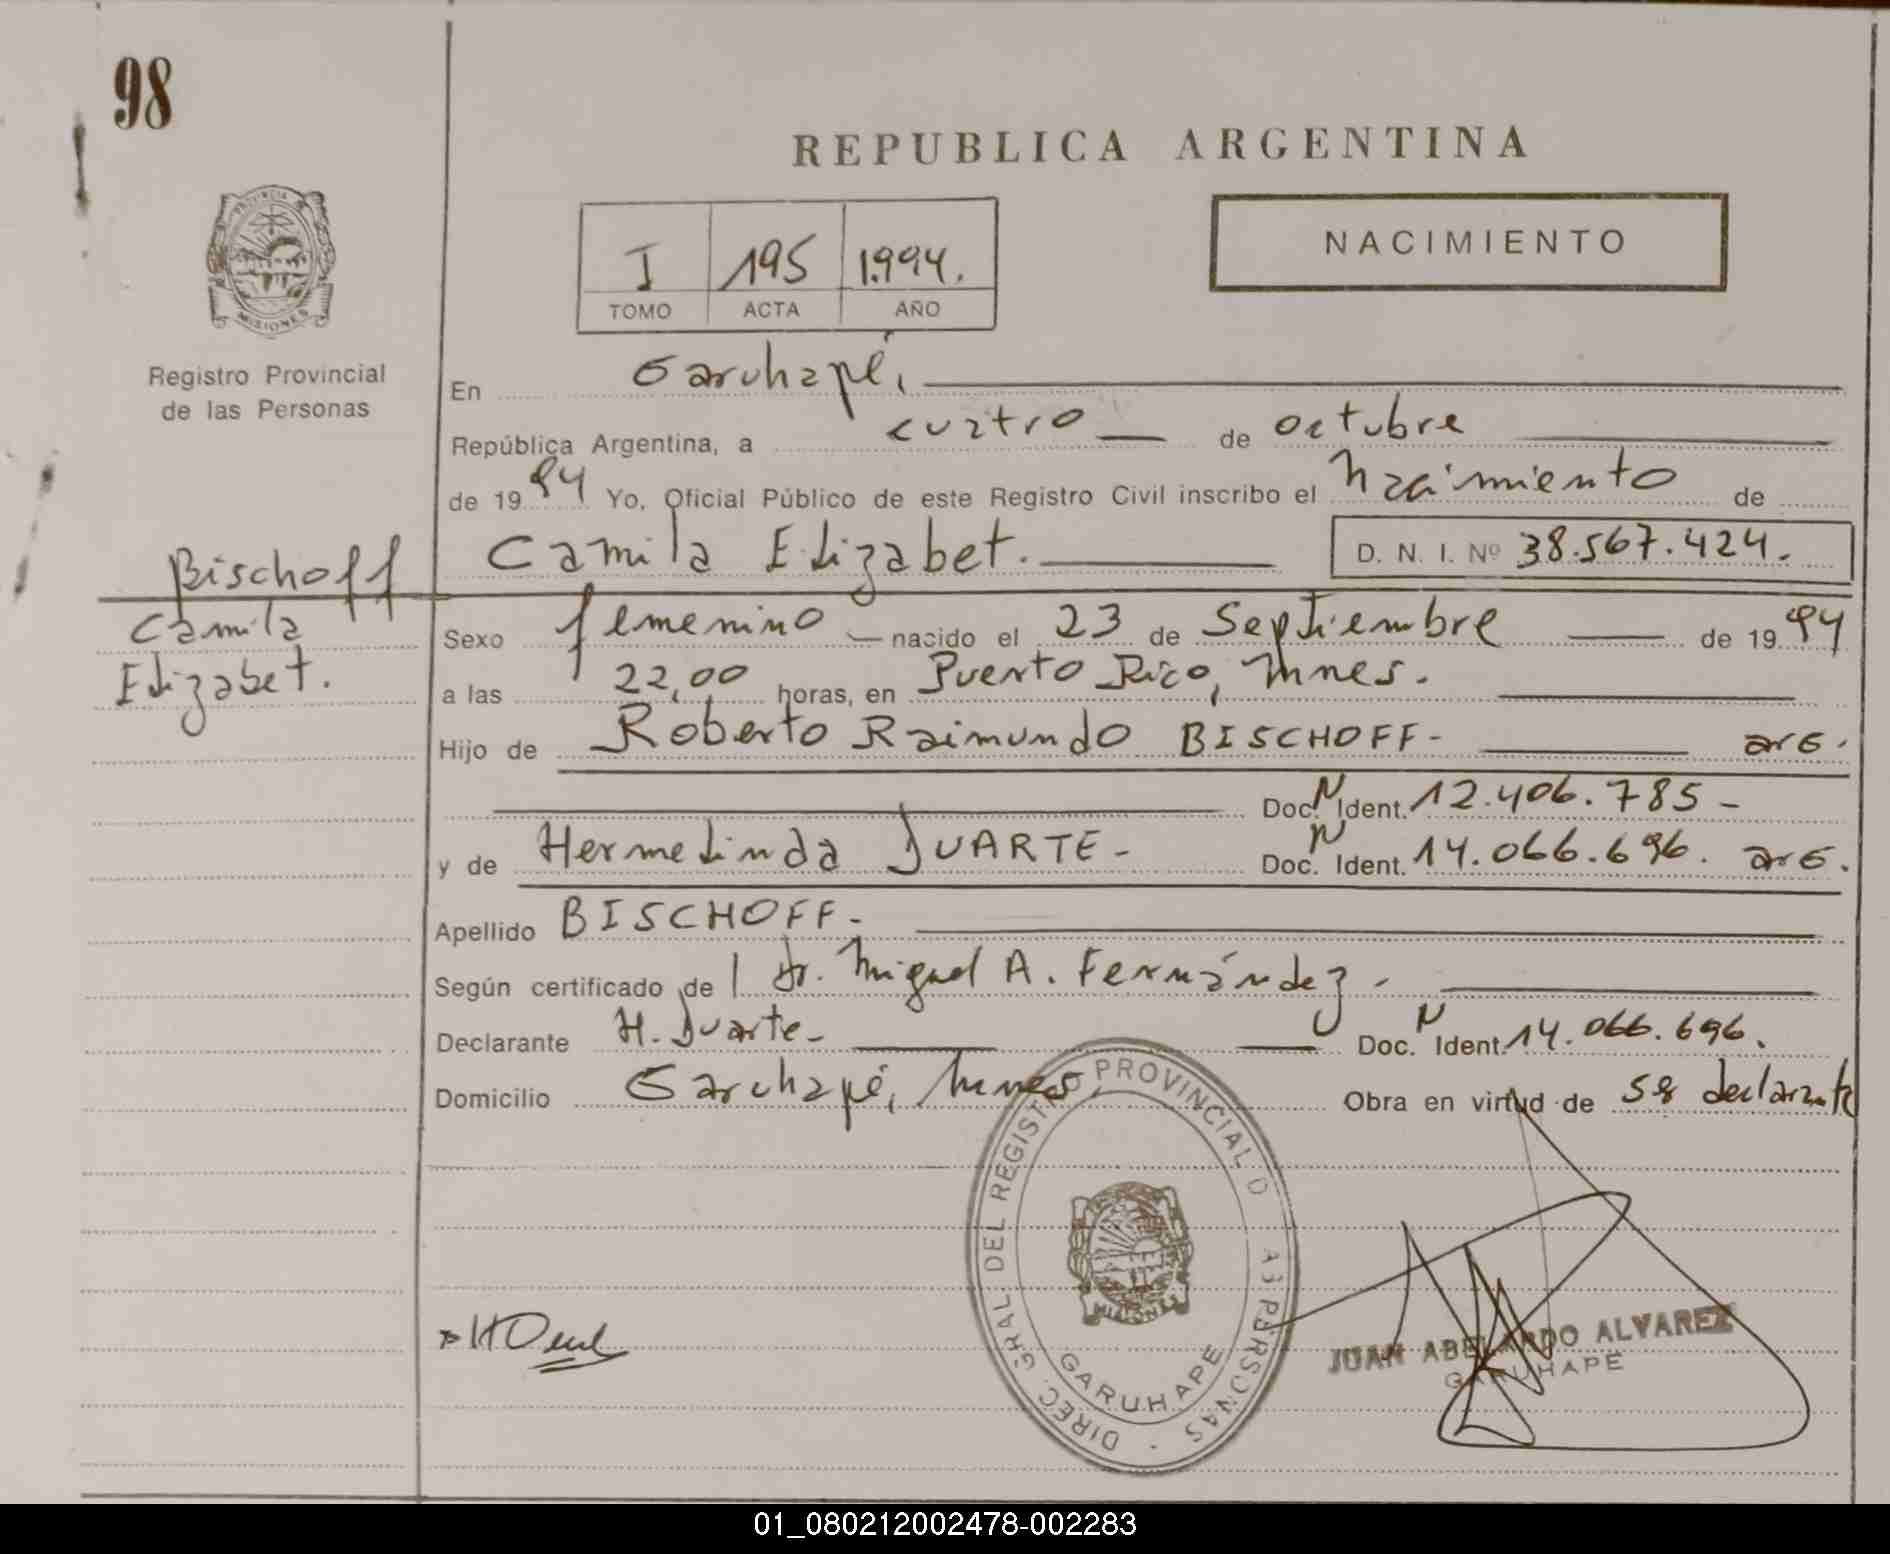 98
REPUBLICA ARGENTINA
NACIMIENTO
I 195 1.994.
TOMO ACTA AÑO
PROVINCIA
MISIONES
Registro Provincial
de las Personas
En Garuhapé,
República Argentina, a cuatro de octubre
de 19 94 Yo, Oficial Público de este Registro Civil inscribo el nacimiento de
Camila Elizabet. D. N. I. Nº 38.567.424.
Bischoff
Camila
Elizabet.
Sexo femenino nacido el 23 de Septiembre de 19 94
a las 22,00 horas, en Puerto Rico, Mnes.
Hijo de Roberto Raimundo BISCHOFF- arg.
Doc. N Ident. 12.406.785-
y de Hermelinda DUARTE- Doc. N Ident. 14.066.696. arg.
Apellido BISCHOFF-
Según certificado de Dr. Miguel A. Fernández-
Declarante H. Duarte- Doc. N Ident. 14.066.696.
Domicilio Garuhapé, Mnes. Obra en virtud de ser declarante
DIREC. GRAL. DEL REGISTRO PROVINCIAL D AS PERSONAS
MISIONES
GARUHAPE
JUAN ABELARDO ALVAREZ
GARUHAPE
01_080212002478-002283